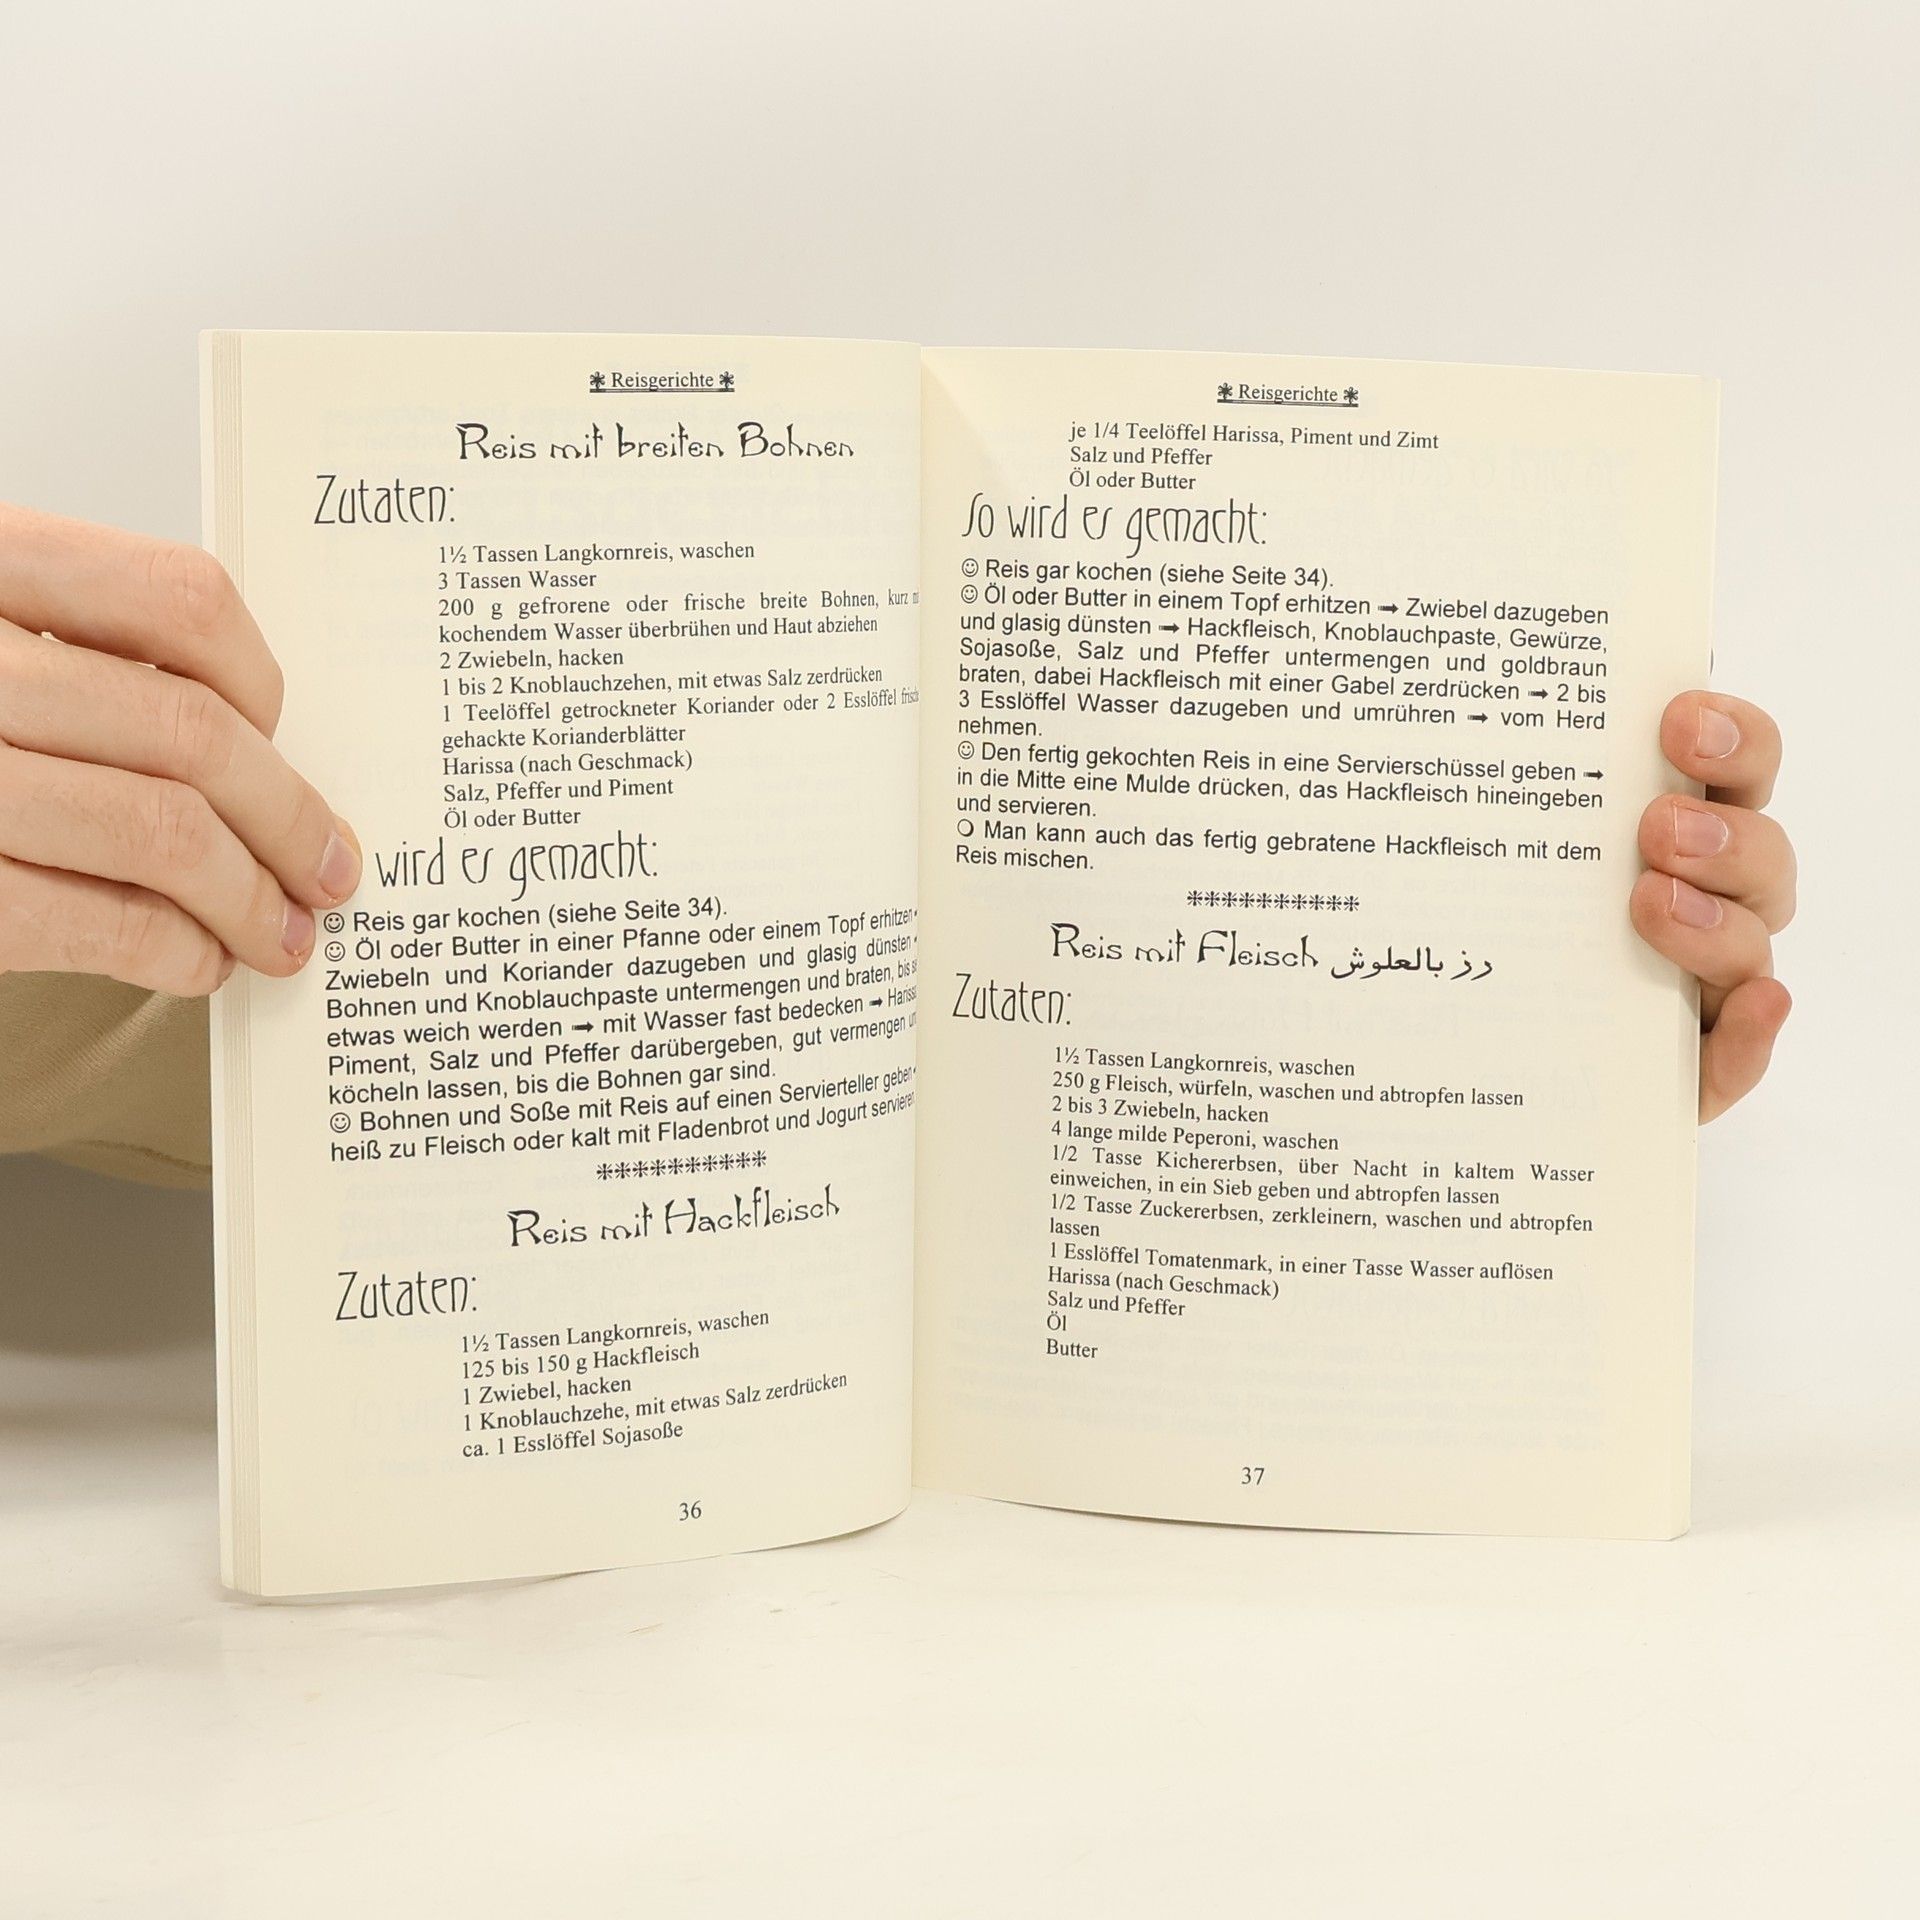 Reisgerichte
Reis mit breiten Bohnen
Zutaten:
1½ Tassen Langkornreis, waschen
3 Tassen Wasser
200 g gefrorene oder frische breite Bohnen, kurz
kochendem Wasser überbrühen und Haut abziehen
2 Zwiebeln, hacken
1 bis 2 Knoblauchzehen, mit etwas Salz zerdrücken
1 Teelöffel getrockneter Koriander oder 2 Esslöffel
gehackte Korianderblätter
Harissa (nach Geschmack)
Salz, Pfeffer und Piment
Öl oder Butter
wird es gemacht:
☺ Reis gar kochen (siehe Seite 34).
☺ Öl oder Butter in einer Pfanne oder einem Topf erhitzen
Zwiebeln und Koriander dazugeben und glasig dünsten
Bohnen und Knoblauchpaste untermengen und braten, bis
etwas weich werden ➟ mit Wasser fast bedecken ➟
Piment, Salz und Pfeffer darübergeben, gut vermengen
köcheln lassen, bis die Bohnen gar sind.
☺ Bohnen und Soße mit Reis auf einen Servierteller geben
heiß zu Fleisch oder kalt mit Fladenbrot und Jogurt servieren
❉❉❉❉❉❉❉❉❉❉
Reis mit Hackfleisch
Zutaten:
1½ Tassen Langkornreis, waschen
125 bis 150 g Hackfleisch
1 Zwiebel, hacken
1 Knoblauchzehe, mit etwas Salz zerdrücken
ca. 1 Esslöffel Sojasoße
36
Reisgerichte
je 1/4 Teelöffel Harissa, Piment und Zimt
Salz und Pfeffer
Öl oder Butter
So wird es gemacht:
☺ Reis gar kochen (siehe Seite 34).
☺ Öl oder Butter in einem Topf erhitzen ➟ Zwiebel dazugeben
und glasig dünsten ➟ Hackfleisch, Knoblauchpaste, Gewürze,
Sojasoße, Salz und Pfeffer untermengen und goldbraun
braten, dabei Hackfleisch mit einer Gabel zerdrücken ➟ 2 bis
3 Esslöffel Wasser dazugeben und umrühren ➟ vom Herd
nehmen.
☺ Den fertig gekochten Reis in eine Servierschüssel geben ➟
in die Mitte eine Mulde drücken, das Hackfleisch hineingeben
und servieren.
❍ Man kann auch das fertig gebratene Hackfleisch mit dem
Reis mischen.
❉❉❉❉❉❉❉❉❉❉
Reis mit Fleisch رز بالعلوش
Zutaten:
1½ Tassen Langkornreis, waschen
250 g Fleisch, würfeln, waschen und abtropfen lassen
2 bis 3 Zwiebeln, hacken
4 lange milde Peperoni, waschen
1/2 Tasse Kichererbsen, über Nacht in kaltem Wasser
einweichen, in ein Sieb geben und abtropfen lassen
1/2 Tasse Zuckererbsen, zerkleinern, waschen und abtropfen
lassen
1 Esslöffel Tomatenmark, in einer Tasse Wasser auflösen
Harissa (nach Geschmack)
Salz und Pfeffer
Öl
Butter
37